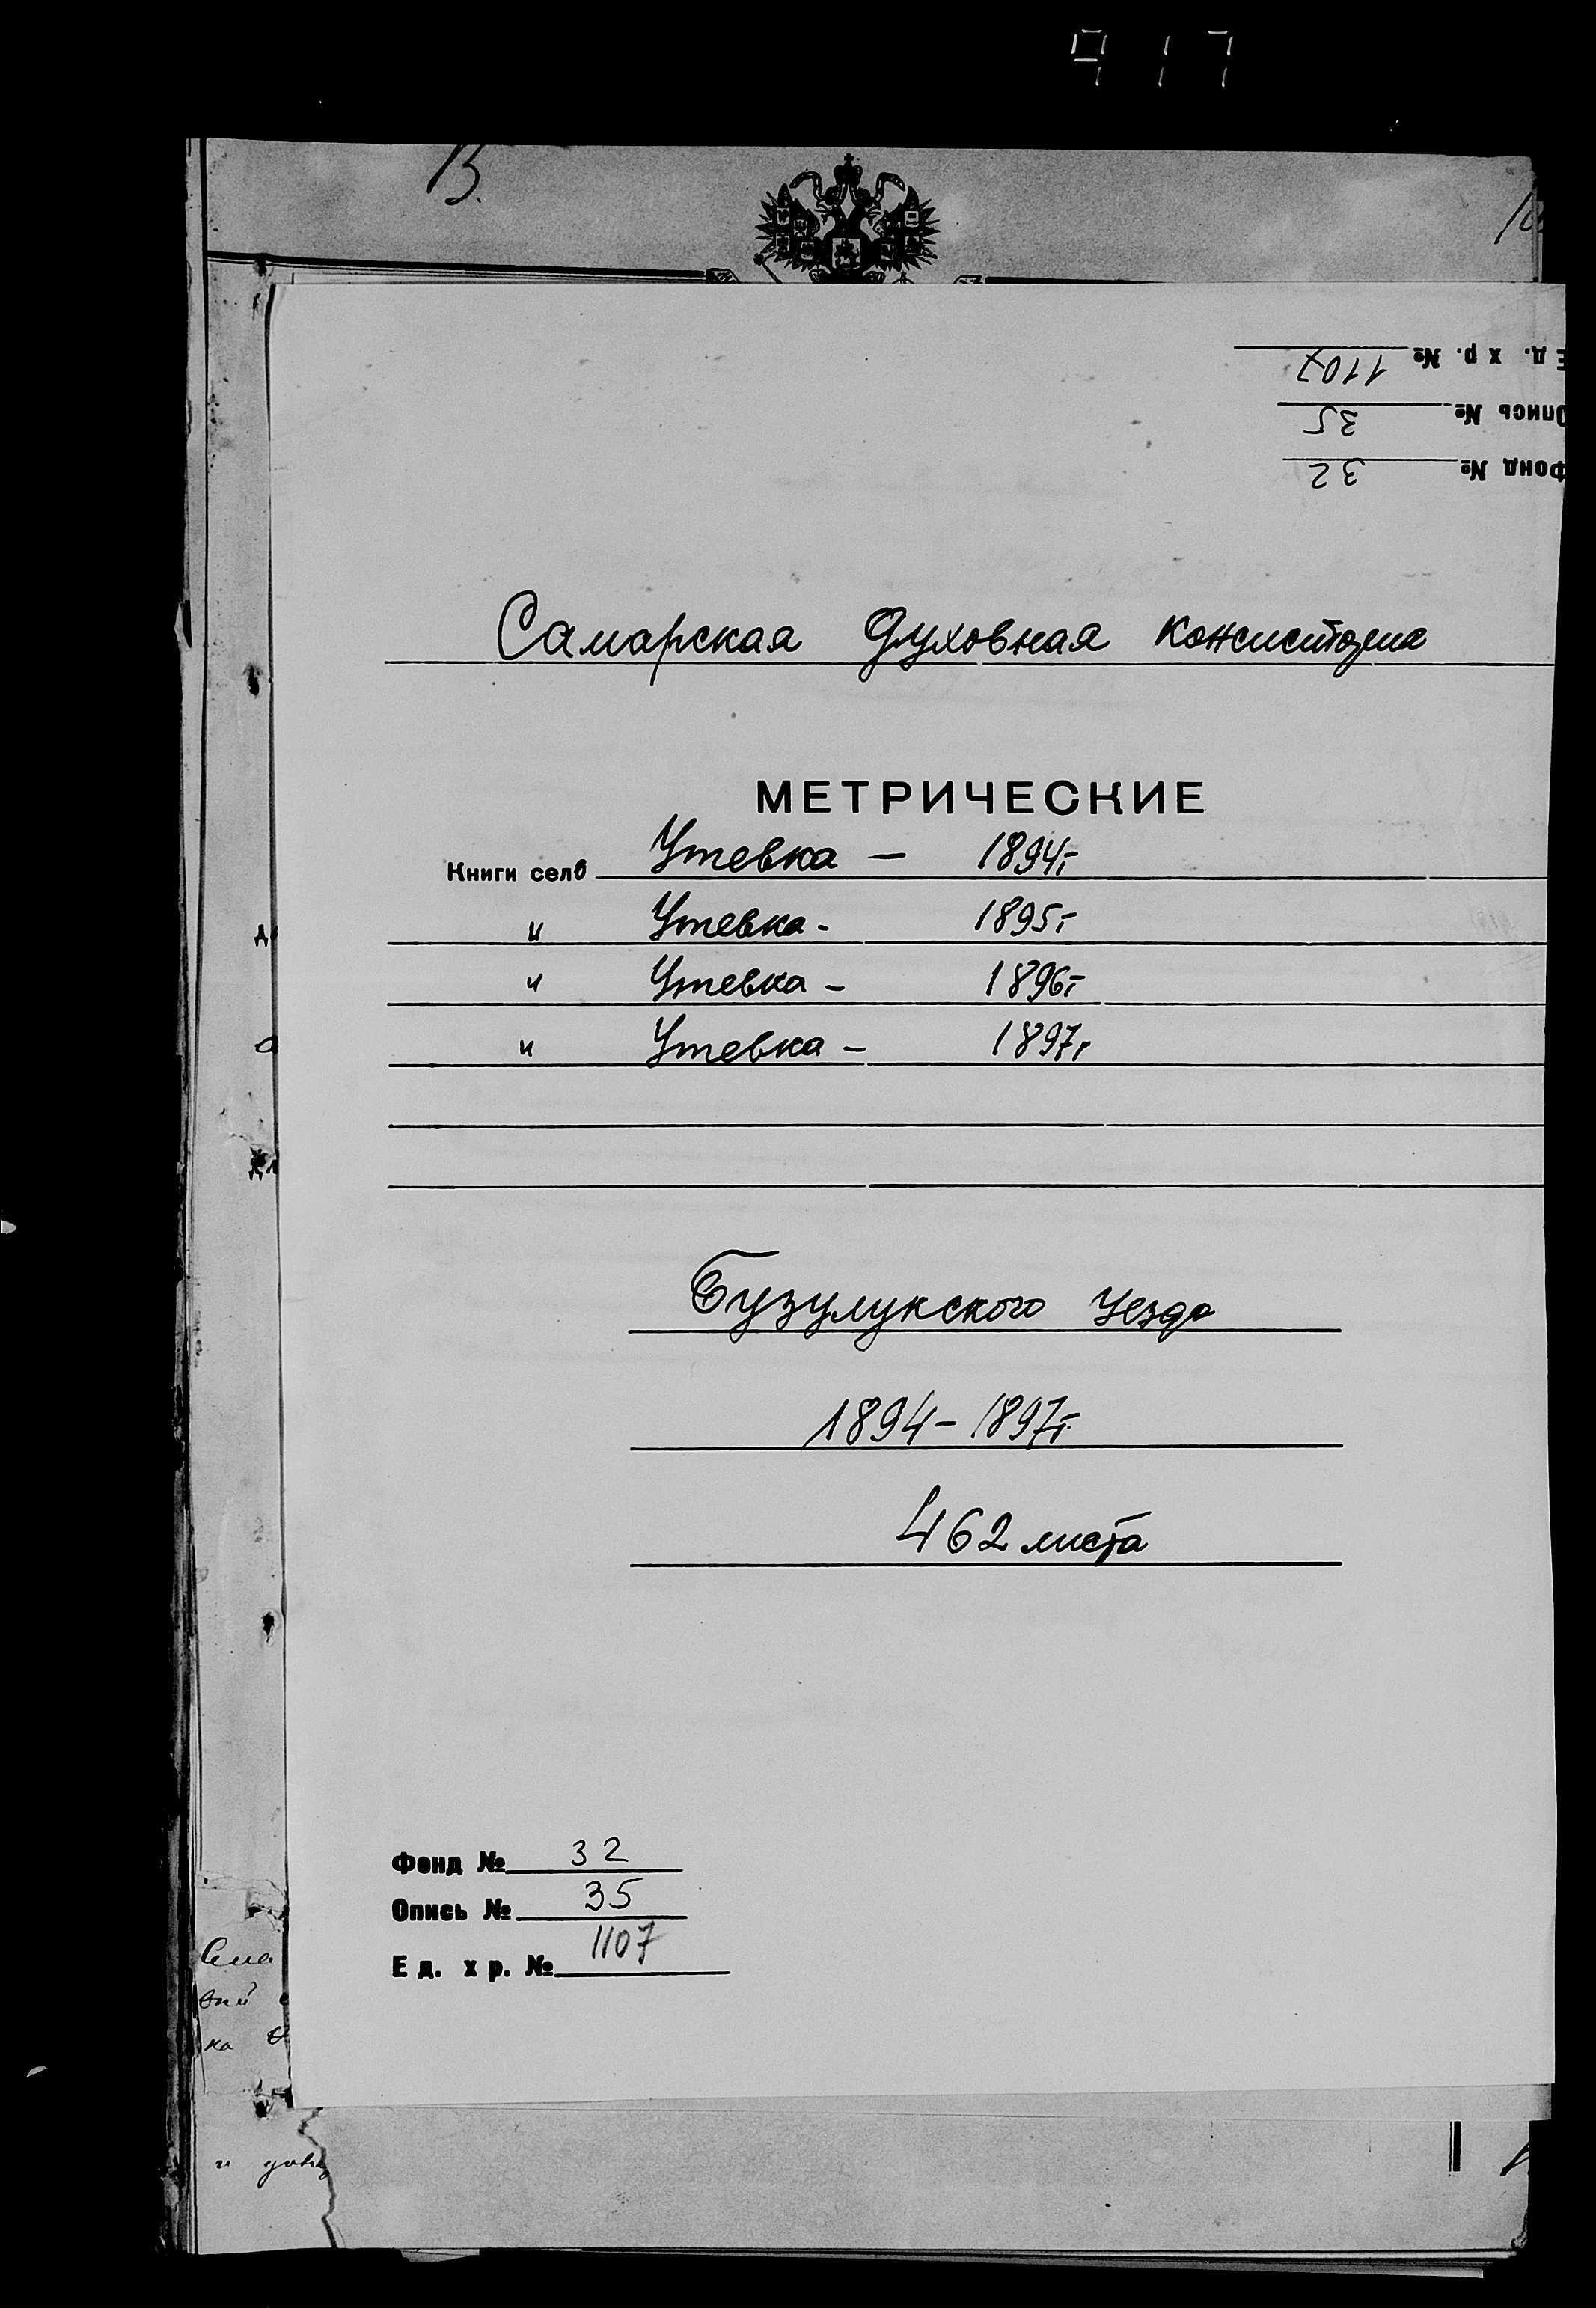 417
В.
Ед. хр. № 1107
Опись № 35
Фонд № 32
Самарская духовная консистория
МЕТРИЧЕСКИЕ
Книги селв Утевка — 1894г
" Утевка - 1895г
" Утевка - 1896г
" Утевка - 1897г
Бузулукского уезда
1894 - 1897г.
462 листа
Фонд № 32
Опись № 35
Ед. хр. № 1107
ка
и